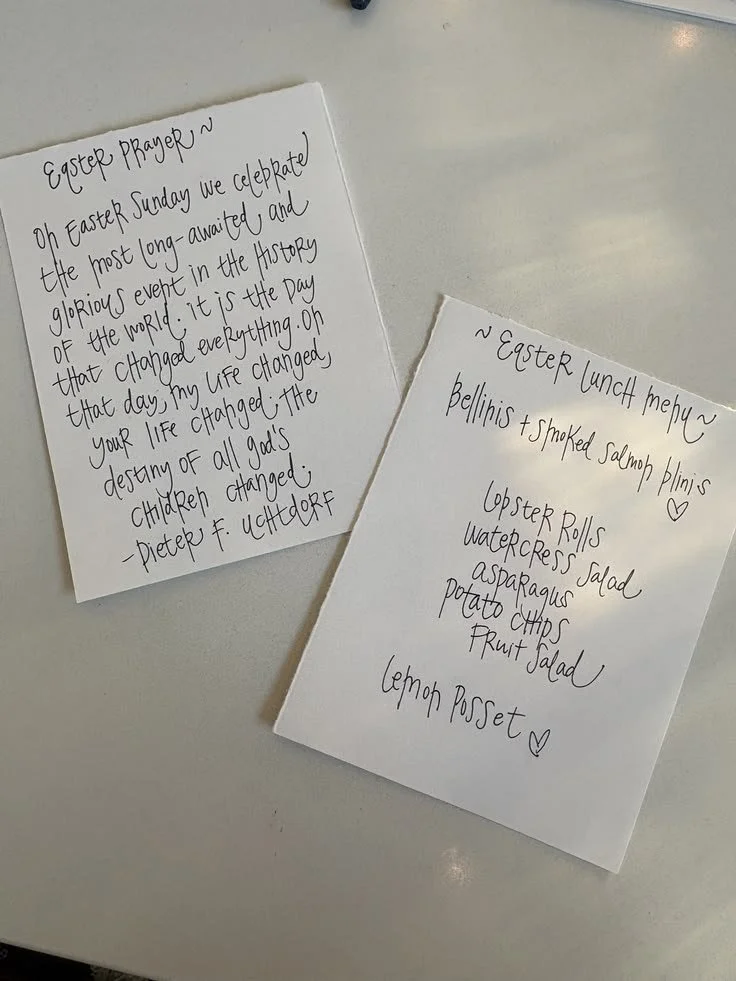 Easter Prayer ~
On Easter Sunday we celebrate
the most long-awaited, and
glorious event in the history
of the world. it is the Day
that changed everything. On
that day, my life changed,
your life changed; the
destiny of all god's
children changed.
-Dieter F. Uchtdorf
~ Easter lunch menu ~
Bellinis + smoked salmon blinis
♡
Lobster Rolls
watercress salad
asparagus
potato chips
Fruit Salad
Lemon Posset ♡